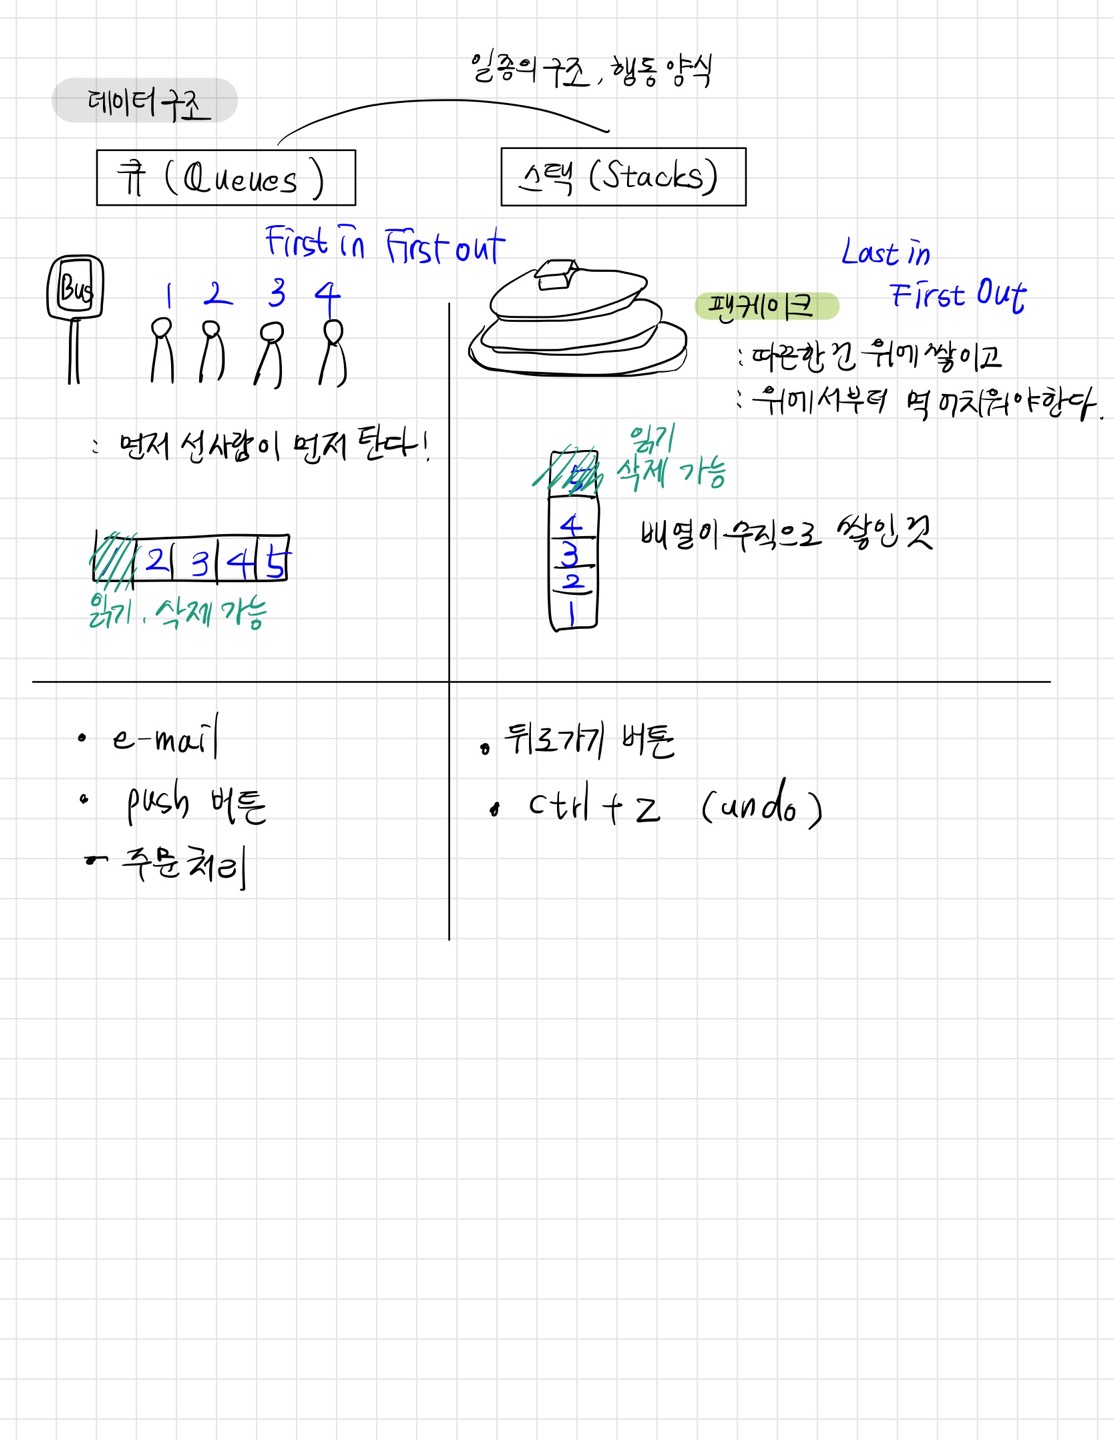 일종의 구조, 행동 양식
데이터 구조
큐 (Queues)
스택 (Stacks)
First in First out
Bus
1 2 3 4
: 먼저 선사람이 먼저 탄다!
2 3 4 5
읽기, 삭제 가능
Last in
First Out
팬케이크
: 따끈한건 위에 쌓이고
: 위에서부터 먹어치워야한다.
읽기
삭제 가능
5
4
3
2
1
배열이 수직으로 쌓인 것
• e-mail
• push 버튼
- 주문처리
• 뒤로가기 버튼
• ctrl + z (undo)